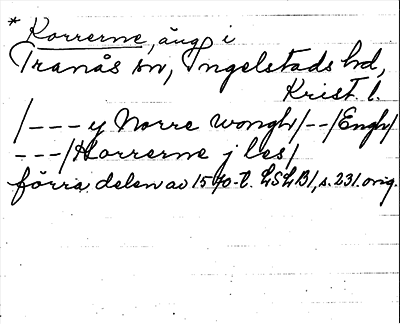 * Korrerne, äng i
Tranås sn, Ingelstads hd,
Krist. l.
/---y Norre wongh/--/Engh/
---/Horrerne j les/
förra delen av 1570-t. LSLB1, s. 231. orig.